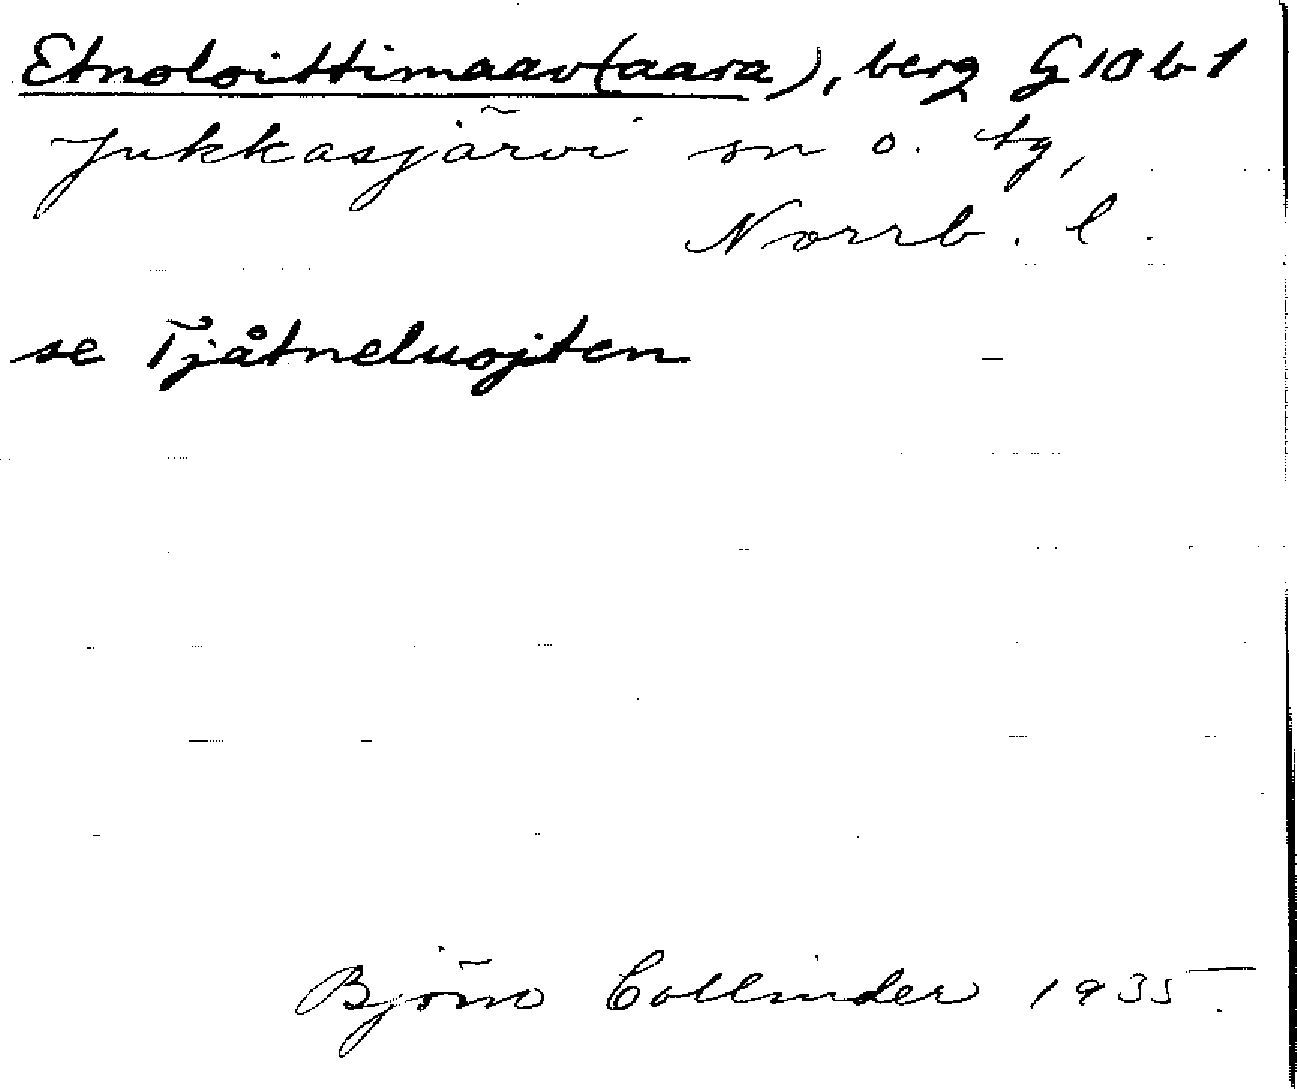 Etnoloittimaav(aara), berg G10b1
Jukkasjärvi sn o. tg,
Norrb. l.
se Tjåtneluojten
Björn Collinder 1935.